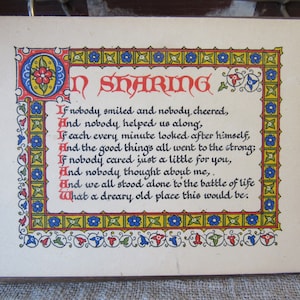 On Sharing.
If nobody smiled and nobody cheered,
And nobody helped us along,
If each every minute looked after himself,
And the good things all went to the strong;
If nobody cared just a little for you,
And nobody thought about me,
And we all stood alone to the battle of life
What a dreary old place this would be.